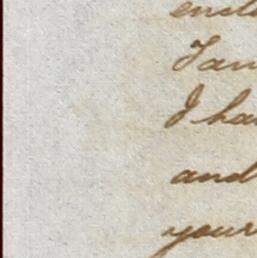 encl
I am
I ha
and
your